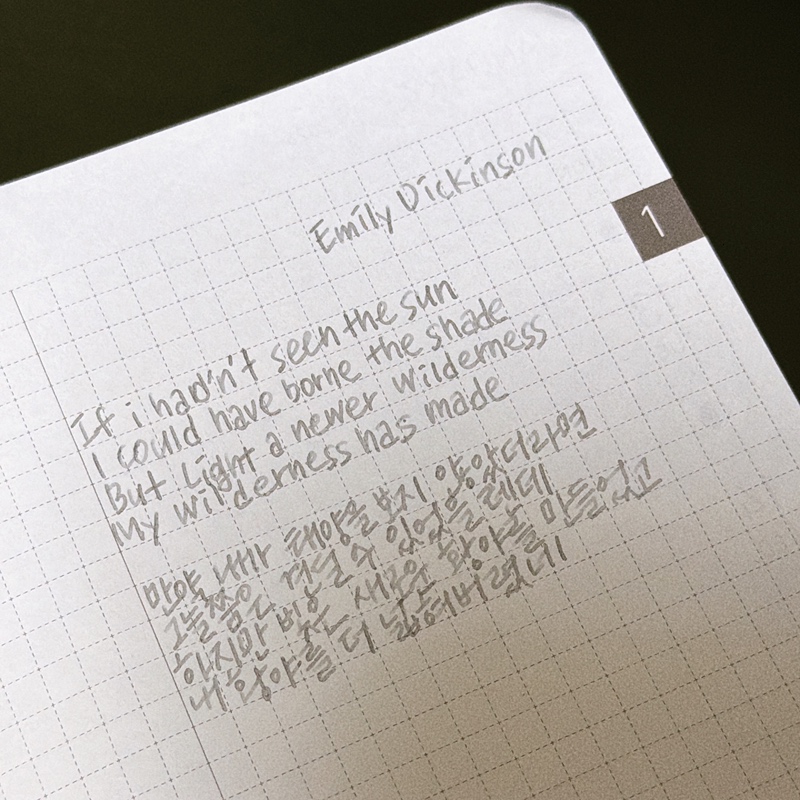 Emily Dickinson
1
If i hadn't seen the sun
I could have borne the shade
But Light a newer wilderness
My wilderness has made
만약 내가 태양을 보지 않았더라면
그늘쯤은 견딜 수 있었을 텐데
하지만 빛은 새로운 황야를 만들었고
내 황야를 더 넓혀버렸네